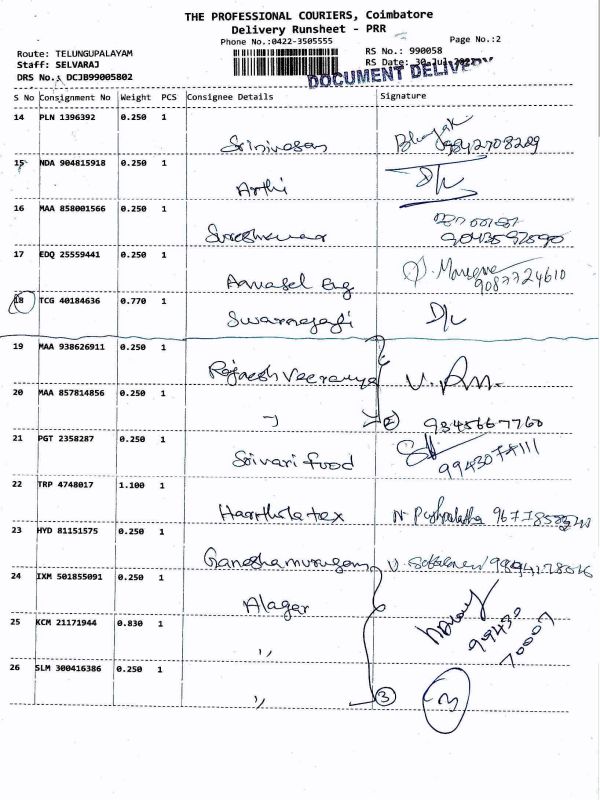 THE PROFESSIONAL COURIERS, Coimbatore
Delivery Runsheet - PRR
Phone No.:0422-3505555
Page No.:2
Route: TELUNGUPALAYAM
RS No.: 990058
Staff: SELVARAJ
RS Date: 30-Jul-2022
DRS No.: DCJB99005802
DOCUMENT DELIVERY
S No Consignment No Weight PCS Consignee Details Signature
14 PLN 1396392 0.250 1
Srinivasan 9842708209
15 NDA 904815918 0.250 1
Arthi D/L
16 MAA 858001566 0.250 1
Sureshkumar
17 EDQ 25559441 0.250 1
Annasel Eng 9087724610
18 TCG 40184636 0.770 1
D/L
19 MAA 938626911 0.250 1
Rajaesh Veeraiya
20 MAA 857814856 0.250 1
" 2 9345667760
21 PGT 2358287 0.250 1
Srivari food
22 TRP 4748017 1.100 1
23 HYD 81151575 0.250 1
Ganeshamurugan
24 IXM 501855091 0.250 1
Alagar
25 KCM 21171944 0.830 1
" 99430
70007
26 SLM 300416386 0.250 1
" 3